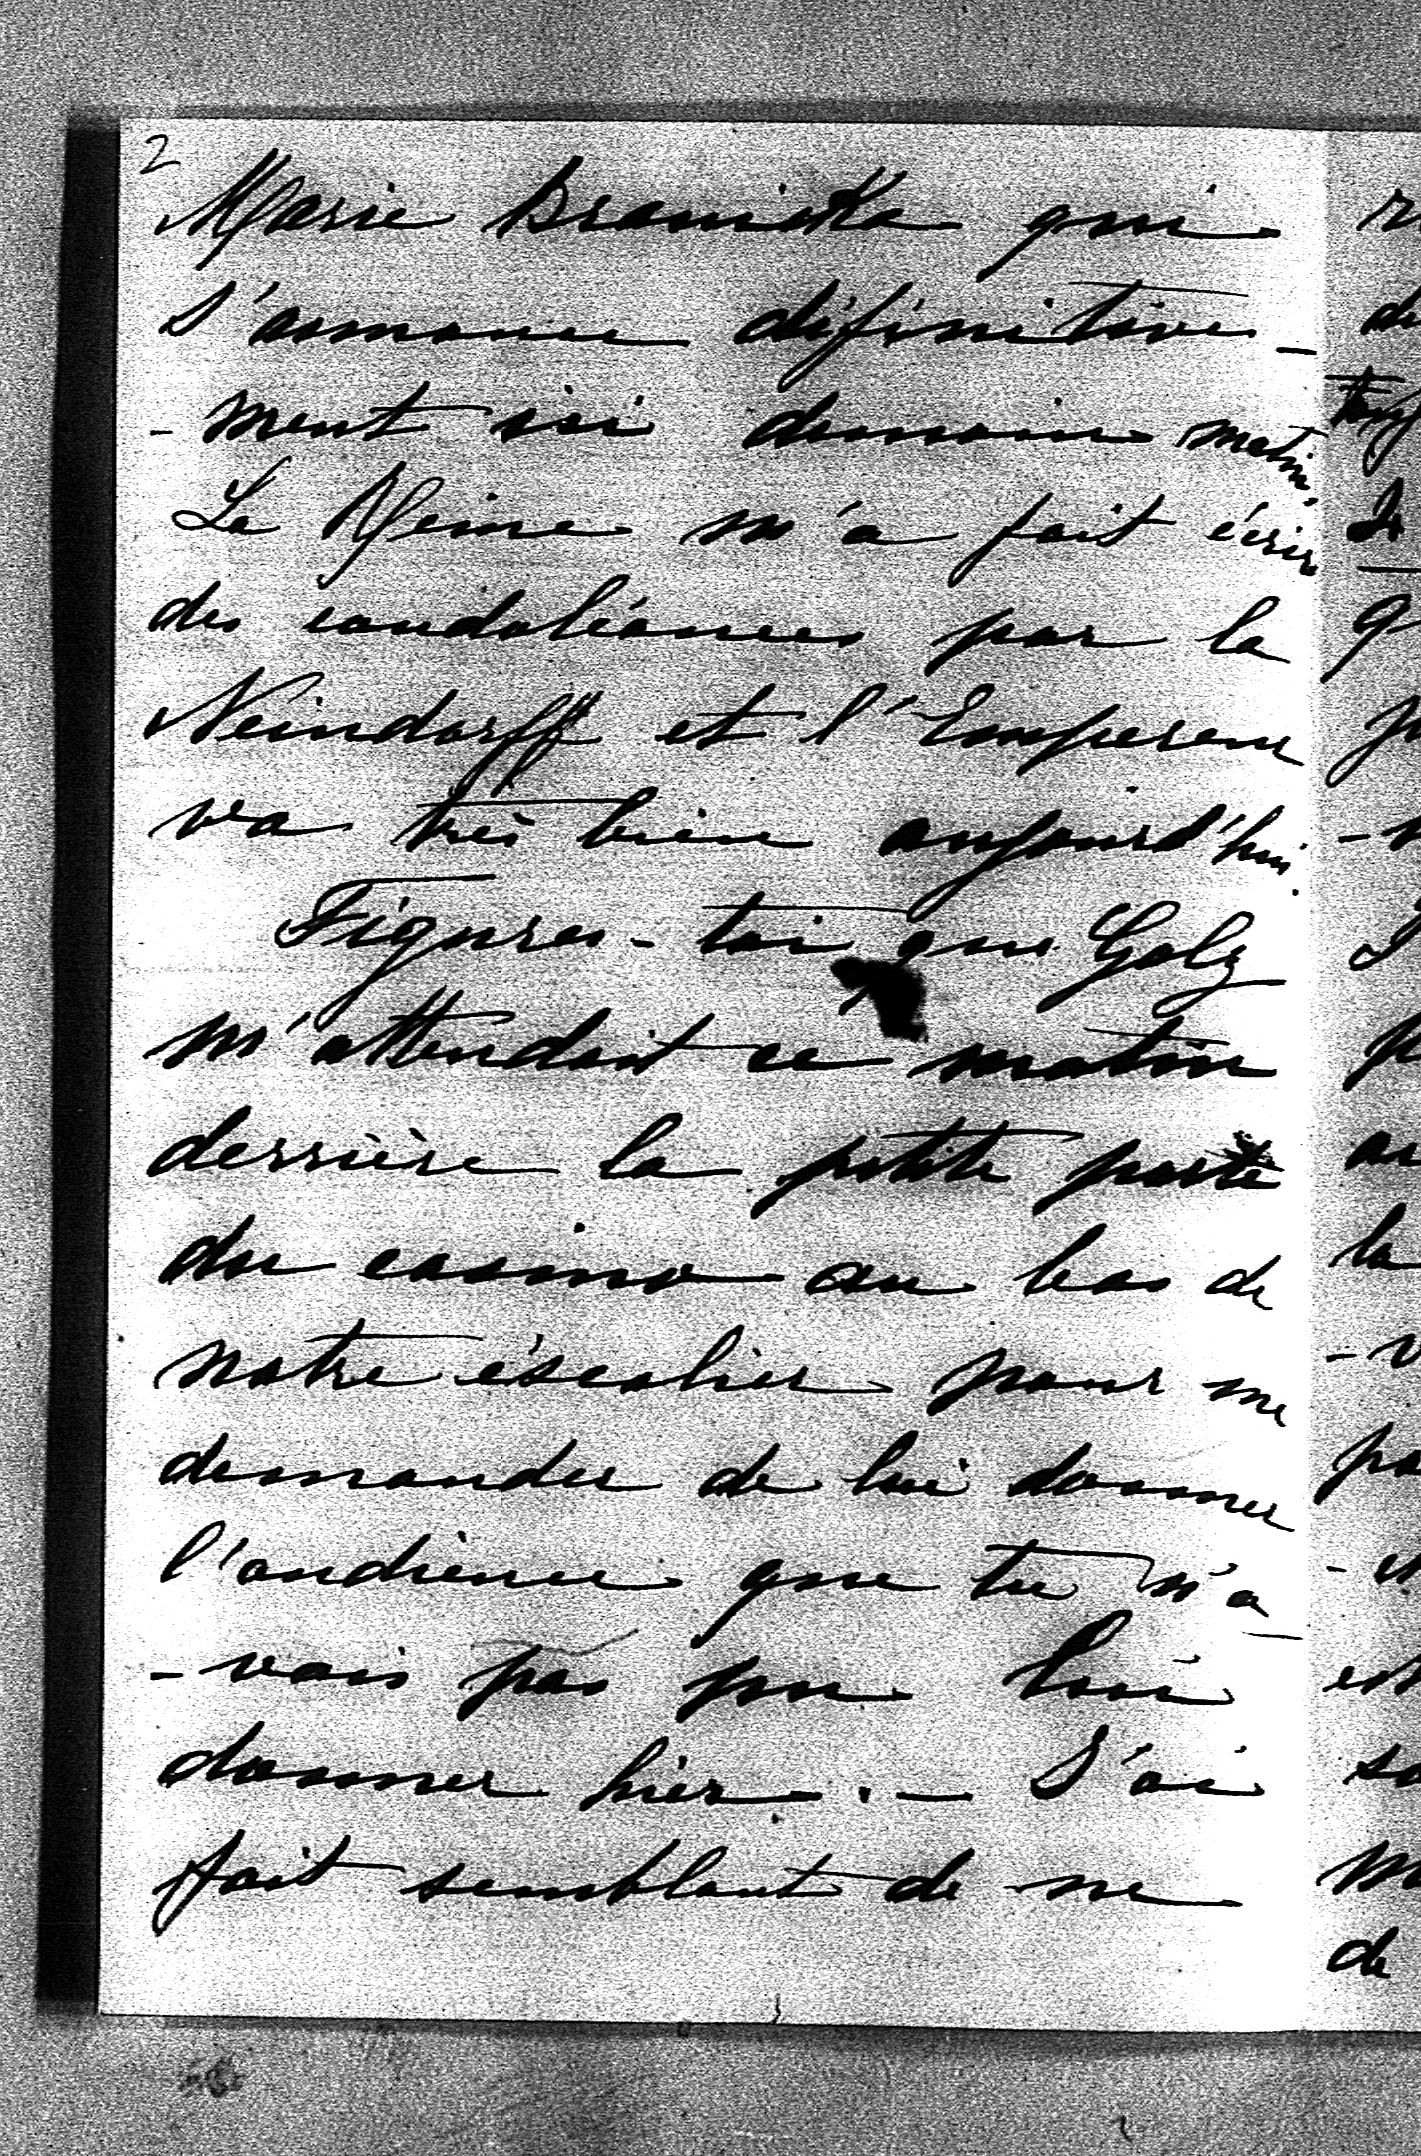 2
Marie Branicka qui
s'annonce définitive-
-ment ici demain matin.
La Reine m'a fait écrire
des condoléances par la
Neindorff et l'Empereur
va très bien aujourd'hui.
Figures-toi que Golz
m'attendait ce matin
derrière la petite porte
du casino au bas de
notre éscalier pour me
demander de lui donner
l'audience que tu n'a-
-vais pas pu lui
donner hier. — J'ai
fait semblant de ne